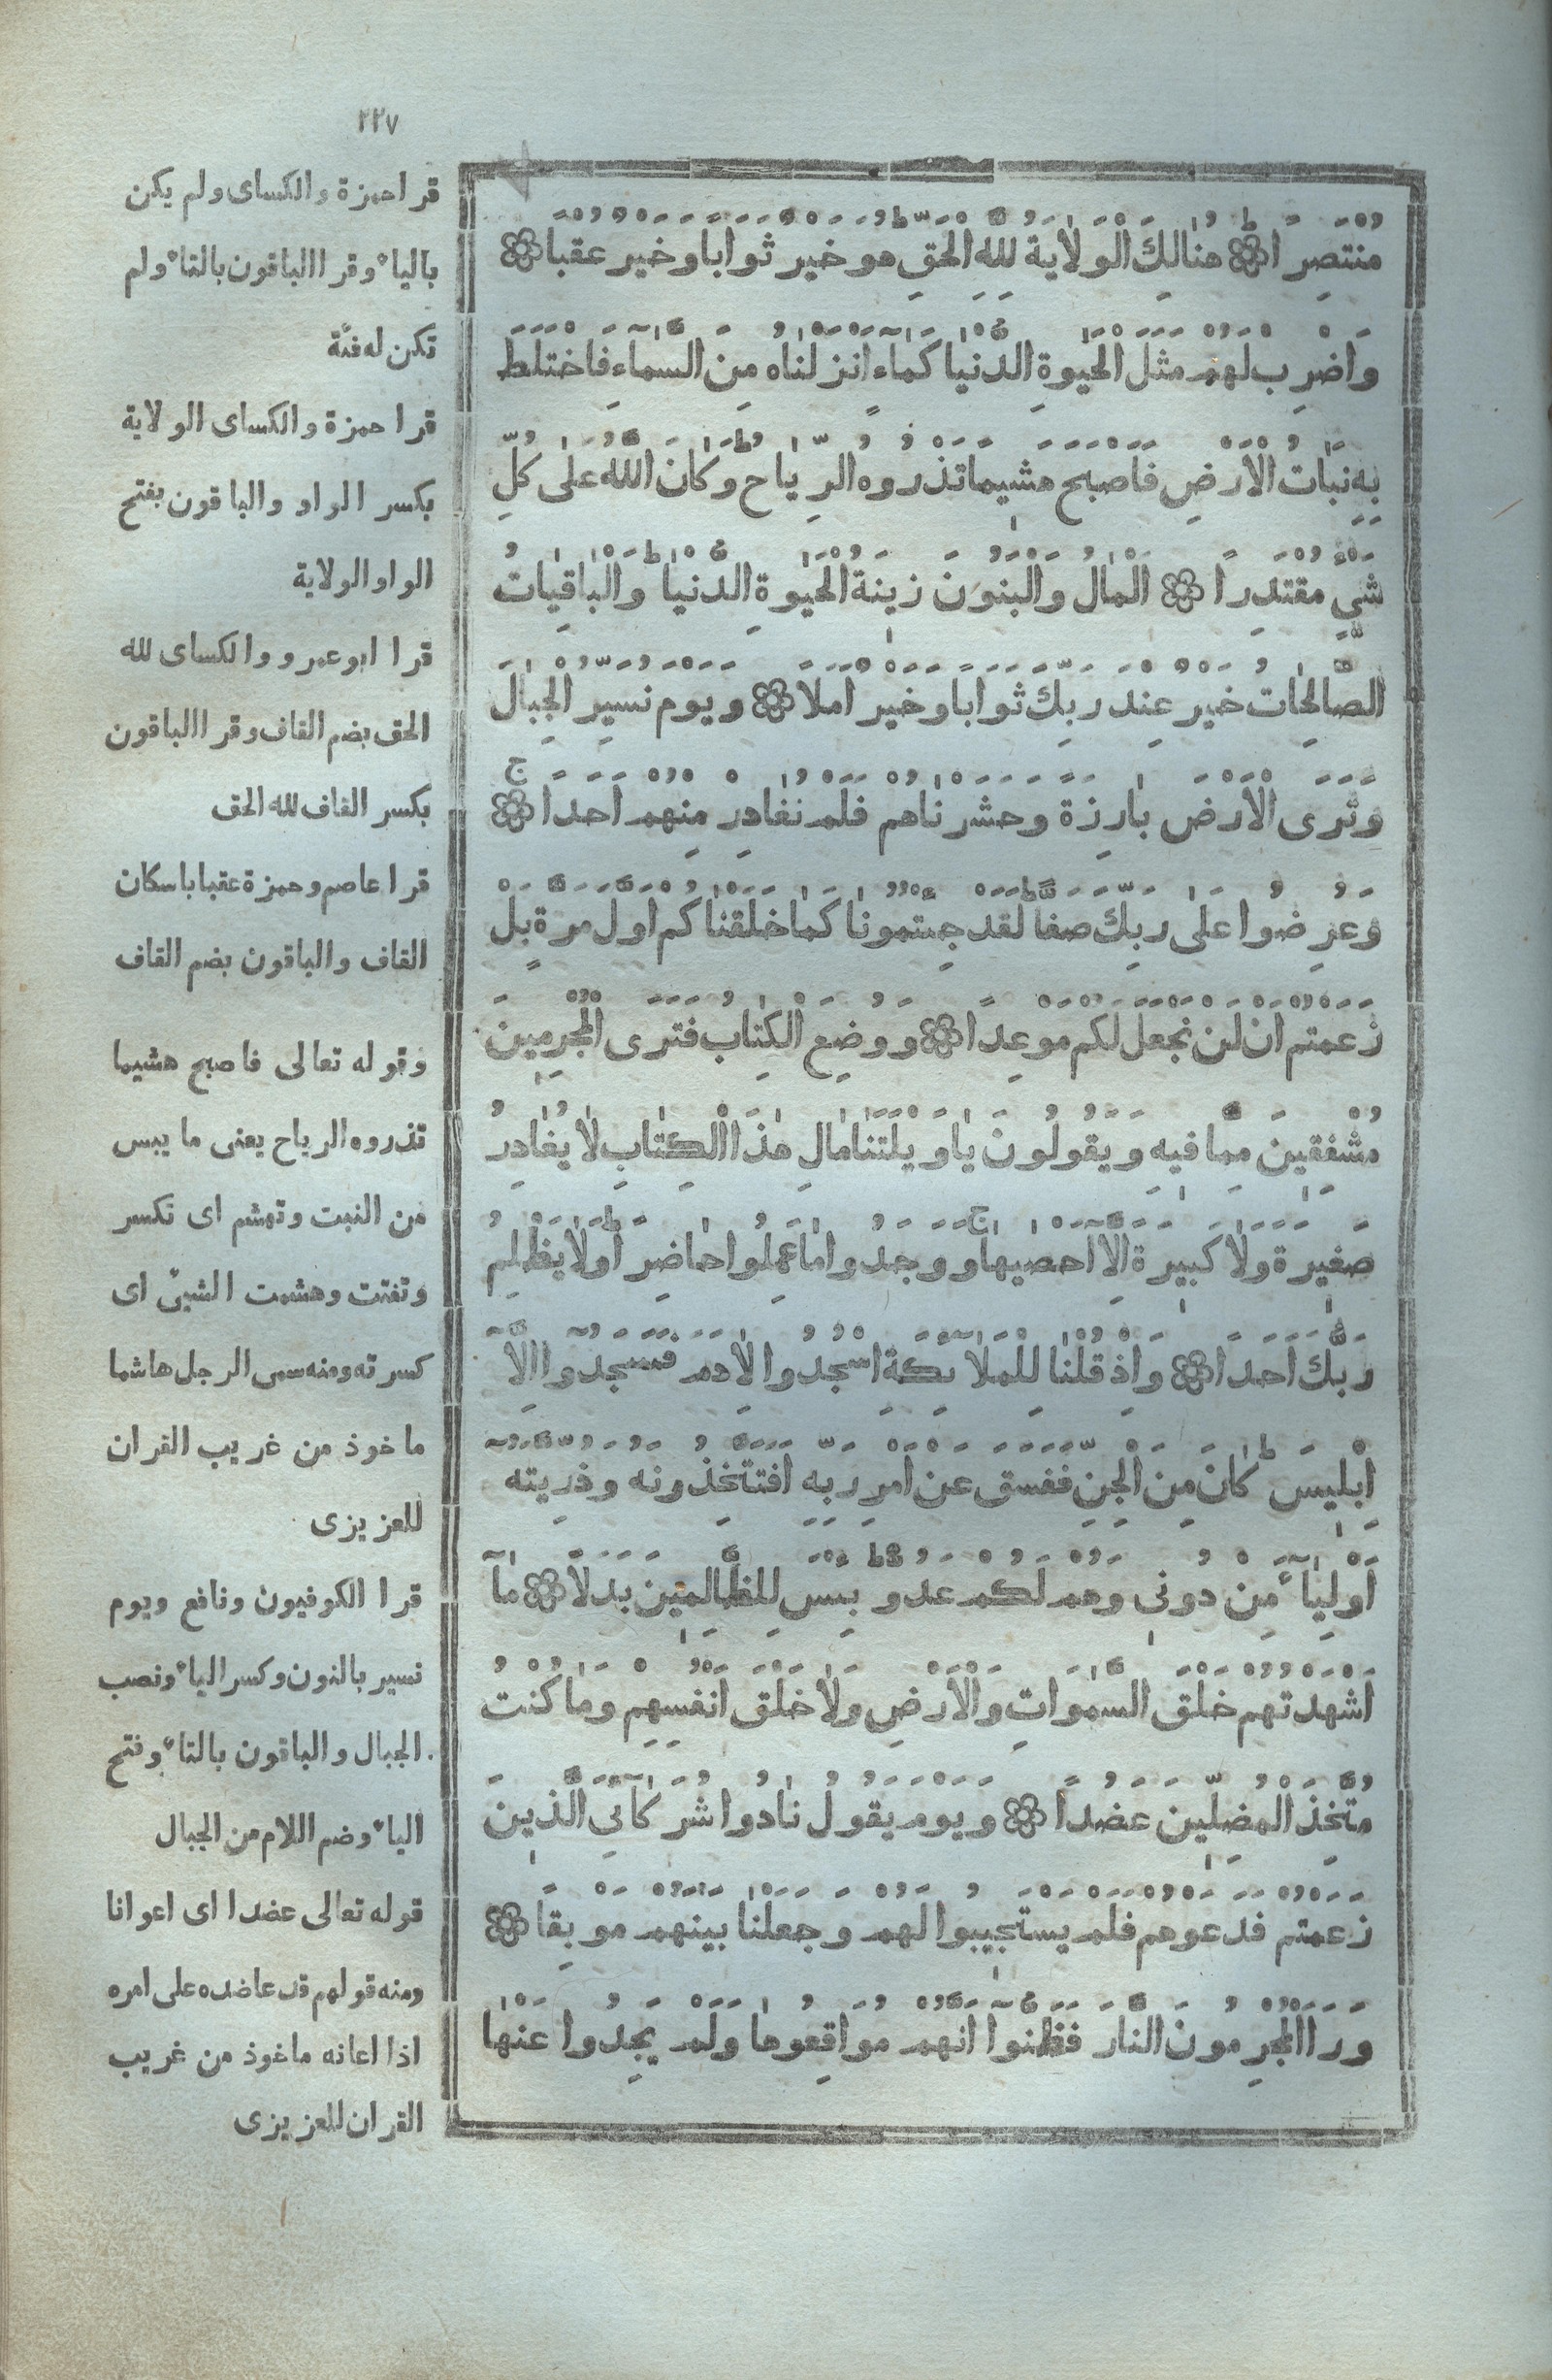 ٢٢٧
مُنْتَصِرًا ۞ هُنَالِكَ الْوَلَايَةُ لِلّٰهِ الْحَقِّ هُوَ خَيْرٌ ثَوَابًا وَخَيْرٌ عُقْبًا ۞
وَاضْرِبْ لَهُمْ مَثَلَ الْحَيٰوةِ الدُّنْيَا كَمَآءٍ اَنْزَلْنَاهُ مِنَ السَّمَآءِ فَاخْتَلَطَ
بِهِ نَبَاتُ الْاَرْضِ فَاَصْبَحَ هَشِيمًا تَذْرُوهُ الرِّيَاحُ ط وَكَانَ اللّٰهُ عَلٰى كُلِّ
شَيْءٍ مُقْتَدِرًا ۞ اَلْمَالُ وَالْبَنُونَ زِينَةُ الْحَيٰوةِ الدُّنْيَا ط وَالْبَاقِيَاتُ
الصَّالِحَاتُ خَيْرٌ عِنْدَ رَبِّكَ ثَوَابًا وَخَيْرٌ اَمَلًا ۞ وَيَوْمَ نُسَيِّرُ الْجِبَالَ
وَتَرَى الْاَرْضَ بَارِزَةً وَحَشَرْنَاهُمْ فَلَمْ نُغَادِرْ مِنْهُمْ اَحَدًا ج ۞
وَعُرِضُوا عَلٰى رَبِّكَ صَفًّا ط لَقَدْ جِئْتُمُونَا كَمَا خَلَقْنَاكُمْ اَوَّلَ مَرَّةٍ بَلْ
زَعَمْتُمْ اَنْ لَنْ نَجْعَلَ لَكُمْ مَوْعِدًا ۞ وَوُضِعَ الْكِتَابُ فَتَرَى الْمُجْرِمِينَ
مُشْفِقِينَ مِمَّا فِيهِ وَيَقُولُونَ يَا وَيْلَتَنَا مَالِ هٰذَا الْكِتَابِ لَا يُغَادِرُ
صَغِيرَةً وَلَا كَبِيرَةً اِلَّآ اَحْصٰيهَا ج وَوَجَدُوا مَا عَمِلُوا حَاضِرًا ط وَلَا يَظْلِمُ
رَبُّكَ اَحَدًا ۞ وَاِذْ قُلْنَا لِلْمَلَآئِكَةِ اسْجُدُوا لِاٰدَمَ فَسَجَدُوٓا اِلَّآ
اِبْلِيسَ ط كَانَ مِنَ الْجِنِّ فَفَسَقَ عَنْ اَمْرِ رَبِّهِ اَفَتَتَّخِذُونَهُ وَذُرِّيَّتَهُٓ
اَوْلِيَآءَ مِنْ دُونِي وَهُمْ لَكُمْ عَدُوٌّ ط بِئْسَ لِلظَّالِمِينَ بَدَلًا ۞ مَآ
اَشْهَدْتُهُمْ خَلْقَ السَّمٰوَاتِ وَالْاَرْضِ وَلَا خَلْقَ اَنْفُسِهِمْ وَمَا كُنْتُ
مُتَّخِذَ الْمُضِلِّينَ عَضُدًا ۞ وَيَوْمَ يَقُولُ نَادُوا شُرَكَآئِيَ الَّذِينَ
زَعَمْتُمْ فَدَعَوْهُمْ فَلَمْ يَسْتَجِيبُوا لَهُمْ وَجَعَلْنَا بَيْنَهُمْ مَوْبِقًا ۞
وَرَاَ الْمُجْرِمُونَ النَّارَ فَظَنُّوٓا اَنَّهُمْ مُوَاقِعُوهَا وَلَمْ يَجِدُوا عَنْهَا
قرا حمزة والكساى ولم يكن
باليا ٔ وقرا الباقون بالتا ٔ ولم
تكن له فئة
قرا حمزة والكساى الولاية
بكسر الواو والباقون بفتح
الواو الولاية
قرا ابو عمرو والكساى لله
الحق بضم القاف وقرا الباقون
بكسر القاف لله الحق
قرا عاصم وحمزة عقبا باسكان
القاف والباقون بضم القاف
وقوله تعالى فاصبح هشيما
تذروه الرياح يعنى ما يبس
من النبت وتهشم اى تكسر
وتفتت وهشمت الشىٔ اى
كسرته ومنه سمى الرجل هاشما
ماخوذ من غريب القران
للعزيزى
قرا الكوفيون ونافع ويوم
نسير بالنون وكسر اليا ٔ ونصب
الجبال والباقون بالتا ٔ وفتح
اليا ٔ وضم اللام من الجبال
قوله تعالى عضدا اى اعوانا
ومنه قولهم قد عاضده على امره
اذا اعانه ماخوذ من غريب
القران للعزيزى